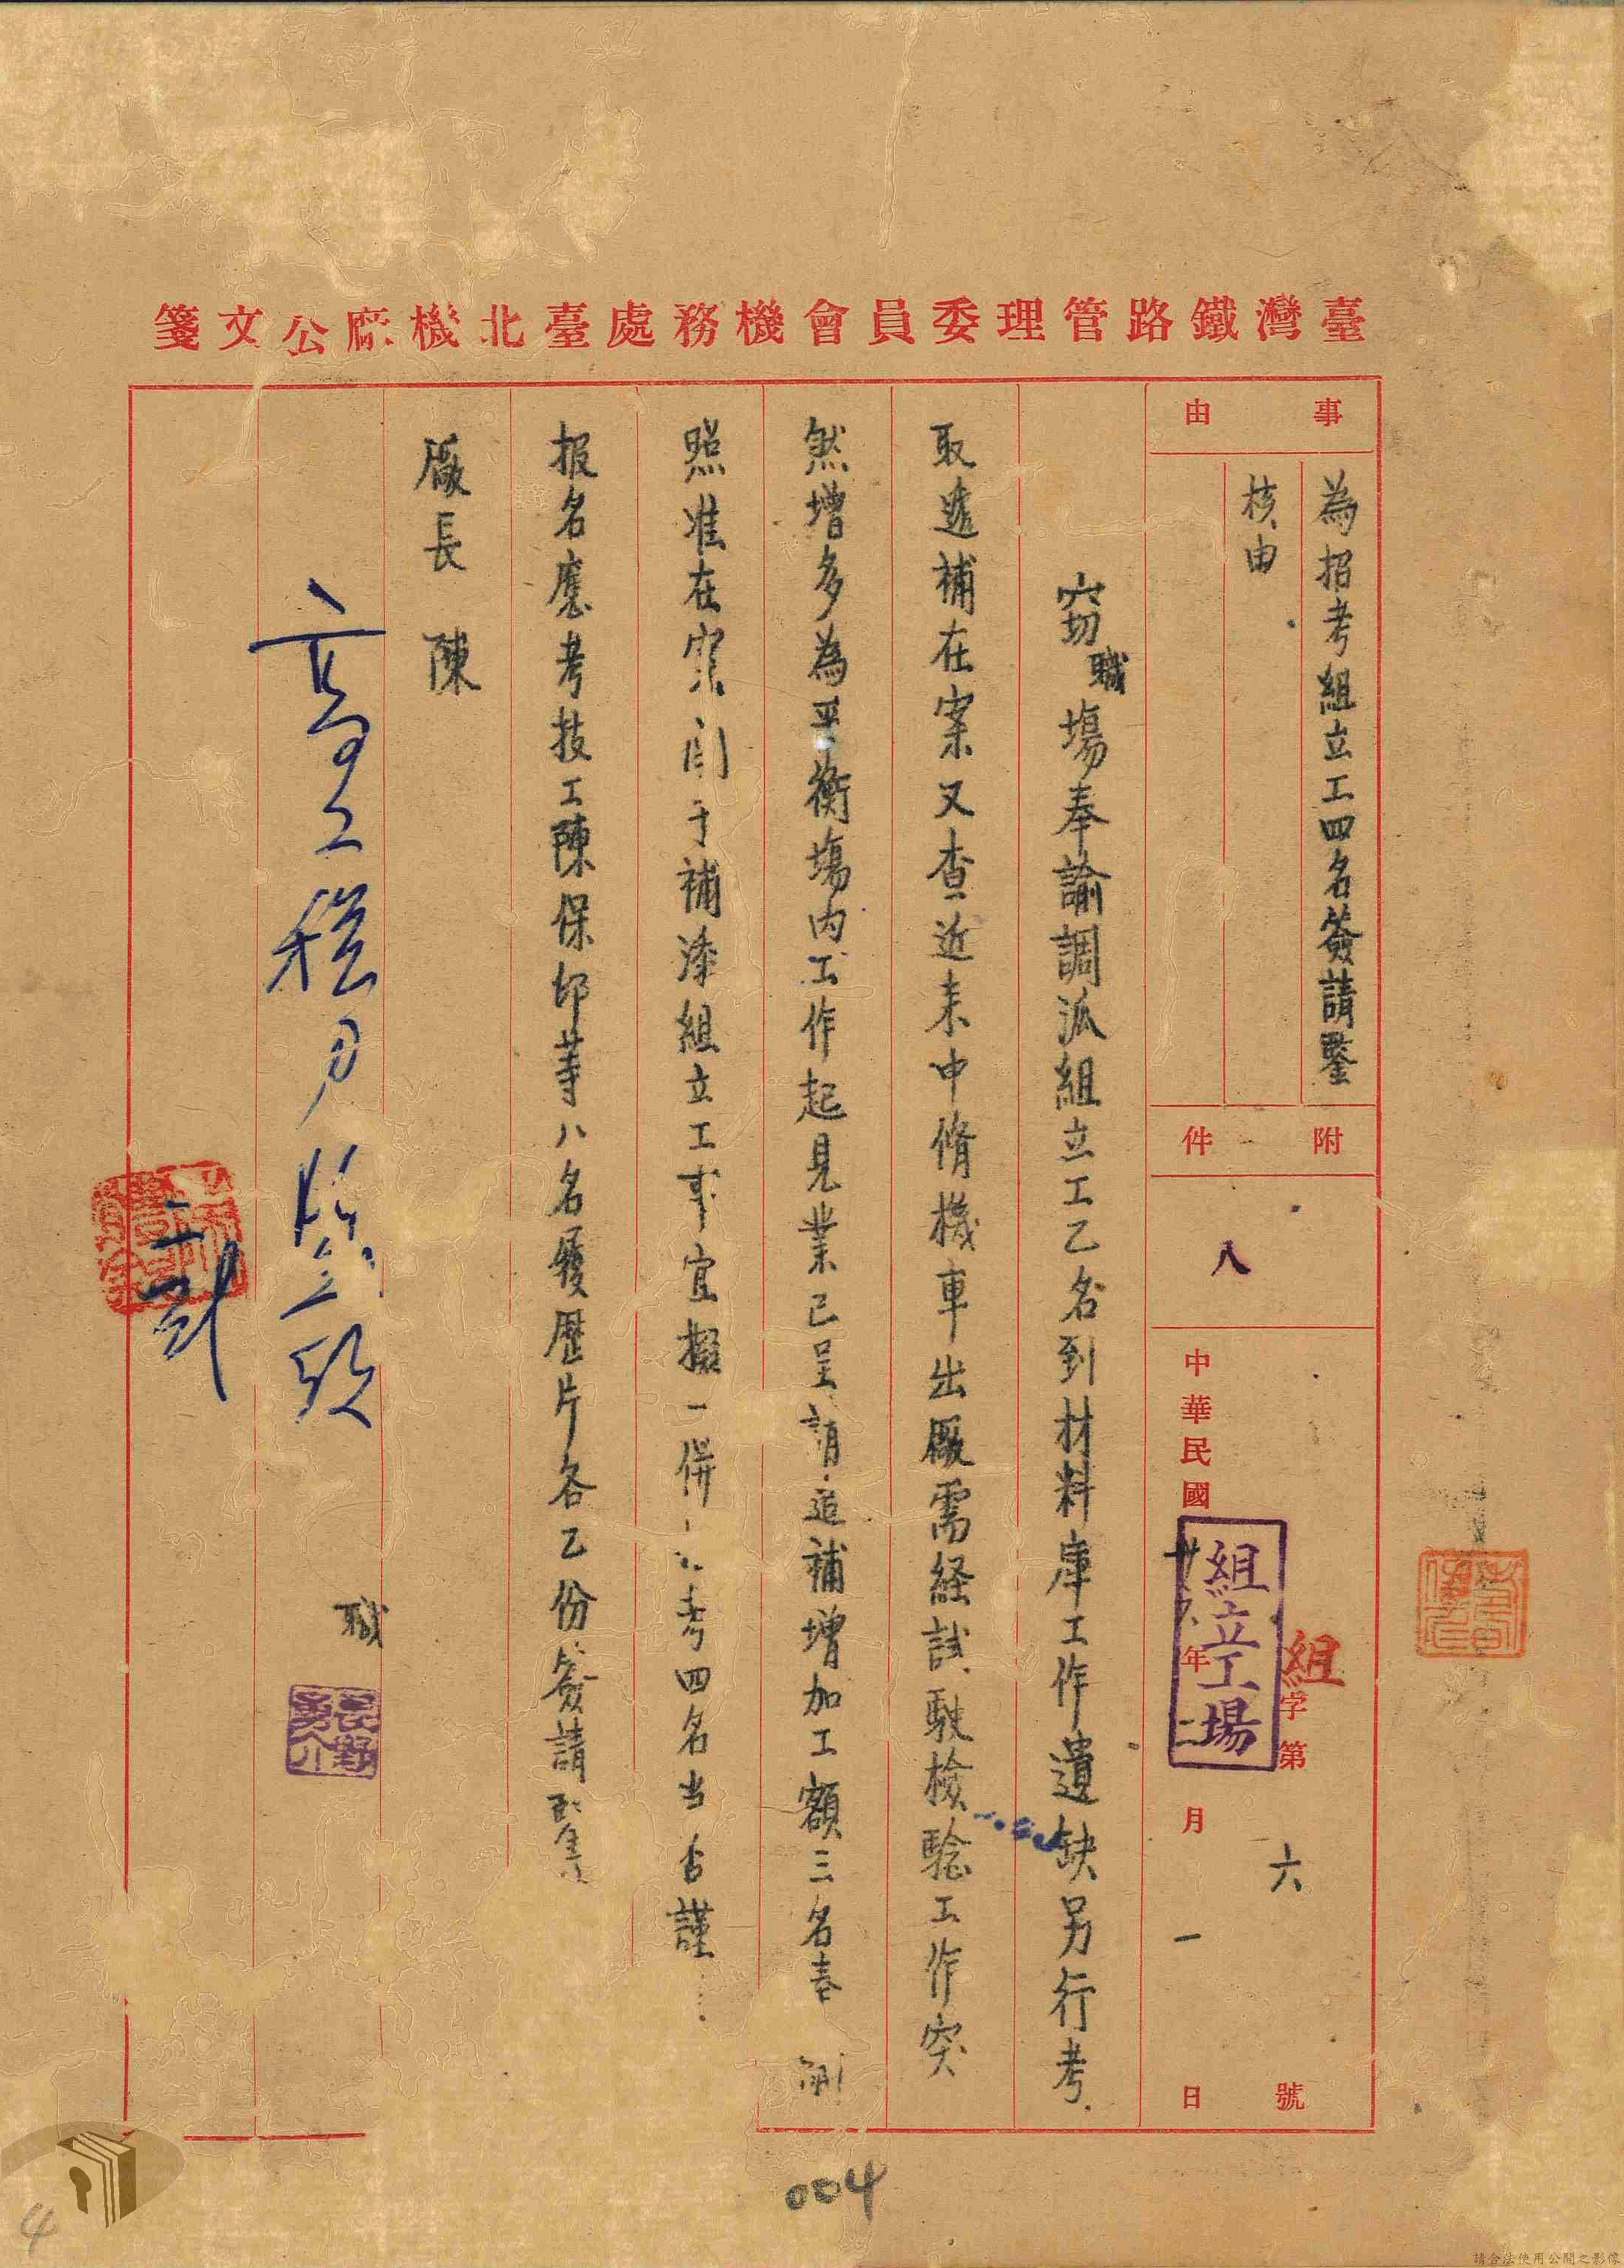 臺灣鐵路管理委員會機務處臺北機廠公文箋
事由
為招考組立工四名簽請鑒
核由
附件
八
組字第六號
中華民國卅年二月一日
組立工場
竊職場奉諭調派組立工乙名到材料庫工作遺缺另行考
取遞補在案又查近来中脩機車出廠需経試駛檢驗工作突
然增多為平衡場内工作起見業已呈請追補增加工額三名奉
照准在案關于補漆組立工事宜擬一併考四名当否謹
报名應考技工陳保邱等八名履歷片各乙份簽請鑒
廠長 陳
職
004
4
請合法使用公開之影像